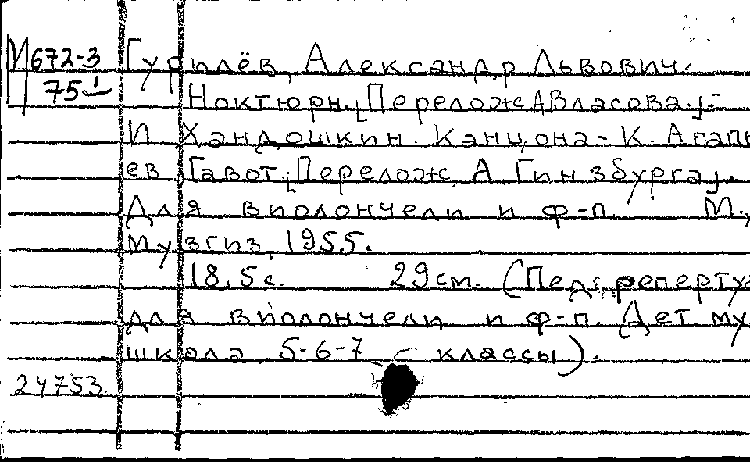 М672-3 Гурилёв, Александр Львович.
75 Ноктюрн [Перелож А Власова]. -
И Хандошкин. Канцона. - К. Агапь
ев Гавот. [Перелож. А Гинзбурга].
Для виолончели и ф-п. М.,
Музгиз, 1955.
18,5 с. 29 см. (Пед. реперту
для виолончели и ф-п. Дет му
школа 5-6-7 классы).
24753